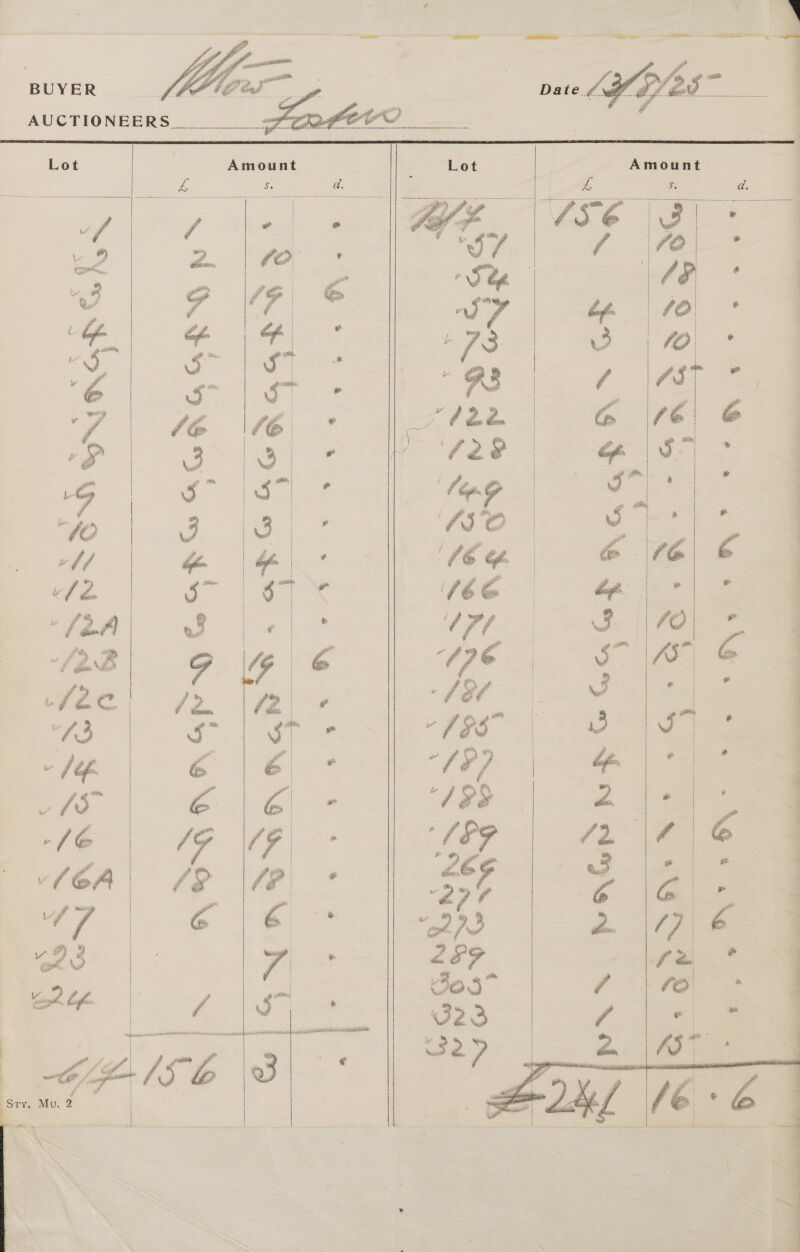 BUYER
Date 13/8/25
AUCTIONEERS
Lot Amount
£ s. d.
1 1 - -
2 2 10 -
3 9 19 6
4 4 4 -
5 5 5 -
6 5 5 -
7 16 16 -
8 3 3 -
9 5 5 -
10 3 3 -
11 4 4 -
12 5 5 -
12A 3 - -
12B 9 19 6
12C 12 12 -
13 5 5 -
14 6 6 -
15 6 6 -
16 19 19 -
16A 18 18 -
17 6 6 -
23 7 -
24 1 5 -
C/F 156 3 -
Sty. Mu. 2
Lot Amount
£ s. d.
B/F 156 3 -
51 1 10 -
54 18 -
57 4 10 -
73 3 10 -
93 1 15 -
122 6 16 6
128 4 5 -
149 5 - -
150 5 - -
164 6 16 6
166 4 - -
171 3 10 -
176 5 15 6
181 3 - -
185 3 5 -
187 4 - -
188 2 - -
189 12 1 6
269 3 - -
271 6 6 -
273 2 17 6
289 12 -
305 1 10 -
323 1 - -
327 2 15 -
£241 16 - 6